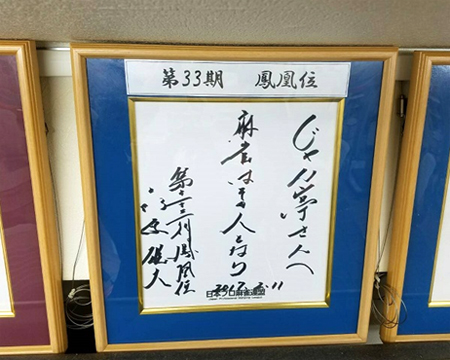 第33期 鳳凰位
じゃん亭さんへ
麻雀は人となり
第三三期鳳凰位
日本プロ麻雀連盟